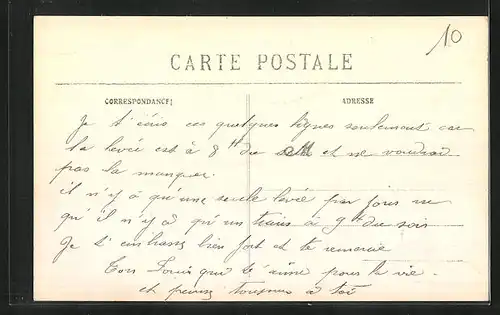 10
CARTE POSTALE
CORRESPONDANCE
ADRESSE
Je t'écris ces quelques lignes seulement car
la levée est à 8 H du et ne voudrais
pas la manquer.
il n'y à qu'une seule levée par jour vu
qu'il n'y a qu'un train à 9 H du soir
Je t'embrasse bien fort et te remercie
Ton Louis qui t'aime pour la vie.
et pense toujours à toi